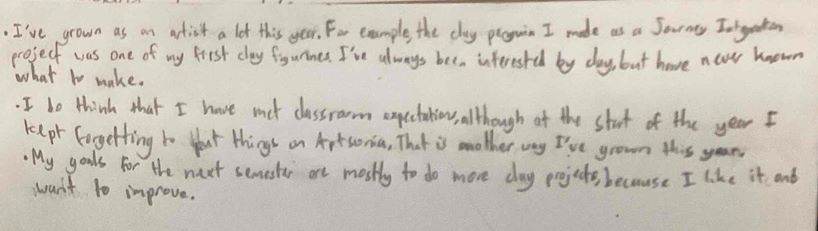 • I've grown as an artist a lot this year. For example, the clay penguin I made as a Journey Integration
project was one of my first clay figurines. I've always been interested by clay, but have never known
what to make.
• I do think that I have met classroom expectations, although at the start of the year I
kept forgetting to put things on Artsonia, That is another way I've grown this year.
• My goals for the next semester are mostly to do more clay projects, because I like it and
want to improve.